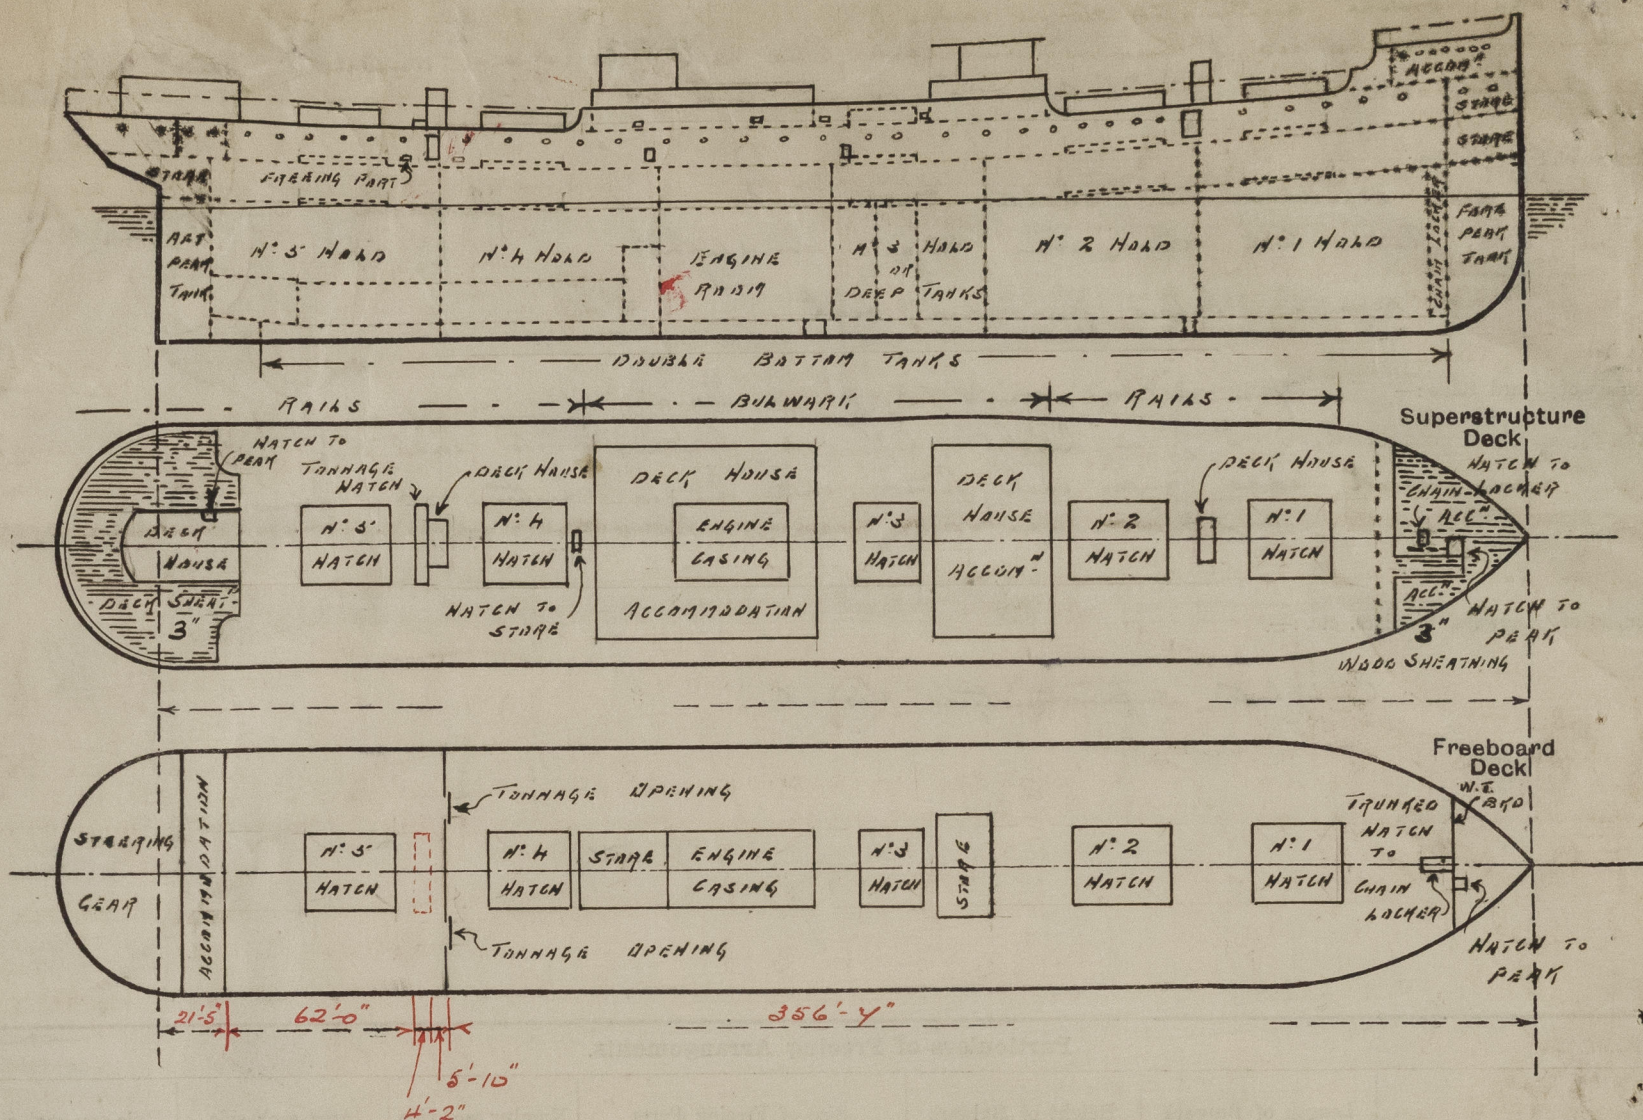 ACCOMN
STORE
STORE
STORE
FREEING PORT
AFT
PEAK
TANK
Nº 5 HOLD
Nº 4 HOLD
ENGINE
ROOM
Nº 3 HOLD
OR
DEEP TANKS
Nº 2 HOLD
Nº 1 HOLD
CHAIN LOCKER
FORE
PEAK
TANK
DOUBLE BOTTOM TANKS
RAILS
BULWARK
RAILS
Superstructure
Deck
HATCH TO
PEAK
TONNAGE
HATCH
DECK HOUSE
DECK
HOUSE
DECK SHEAT.
3"
Nº 5
HATCH
Nº 4
HATCH
HATCH TO
STORE
DECK HOUSE
ENGINE
CASING
ACCOMMODATION
Nº 3
HATCH
DECK
HOUSE
ACCOMN
Nº 2
HATCH
DECK HOUSE
Nº 1
HATCH
HATCH TO
CHAIN-LOCKER
ACCN
ACCN
3"
HATCH TO
PEAK
WOOD SHEATHING
Freeboard
Deck
W.T.
BKD
STEERING
GEAR
ACCOMMODATION
Nº 5
HATCH
TONNAGE OPENING
TONNAGE OPENING
Nº 4
HATCH
STORE
ENGINE
CASING
Nº 3
HATCH
STORE
Nº 2
HATCH
Nº 1
HATCH
TRUNKED
HATCH
TO
CHAIN
LOCKER
HATCH TO
PEAK
21'-5"
62'-0"
356'-4"
5'-10"
4'-2"